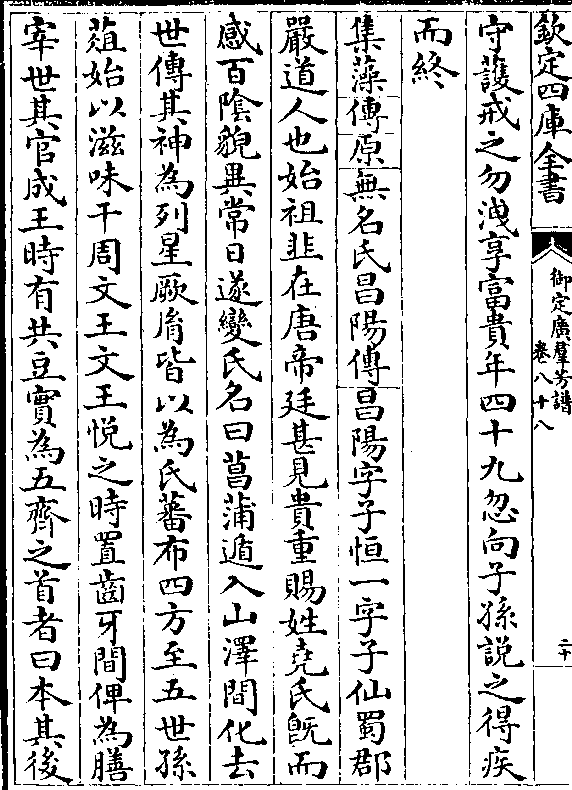 欽定四庫全書
御定廣羣芳譜
卷八十八
二十
守護戒之勿洩享富貴年四十九忽向子孫説之得疾
而終
集藻傳原無名氏昌陽傳昌陽字子恒一字子仙蜀郡
嚴道人也始祖韭在唐帝廷甚見貴重賜姓堯氏旣而
感百陰貌異常日遂變氏名曰菖蒲遁入山澤間化去
世傳其神為列星厥胤皆以為氏蕃布四方至五世孫
葅始以滋味干周文王文王悦之時置齒牙間俾為膳
宰世其官成王時有共豆實為五齊之首者曰本其後